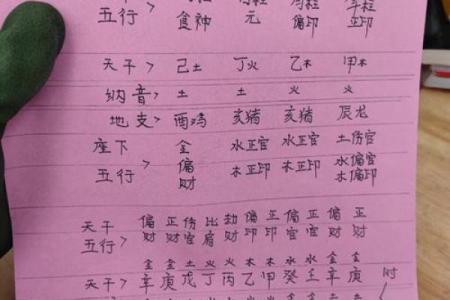 五行> 食神 元 偏印 正印
天干> 己土 丁火 乙木 甲木
纳音> 土 土 火 火
地支> 酉鸡 亥猪 亥猪 辰龙
座下 金 水正官 水正官 土伤官
五行> 偏财 木正印 木正印 水偏官 木偏印
天干 偏财 正财 伤官 比肩 劫财 偏印 正印 偏官 正官 偏财 正财
五行>
金 金 土 火 火 木 木 水 水 金 金
天干> 辛 庚 戊 丁 丙 乙 甲 癸 壬 辛 庚 时